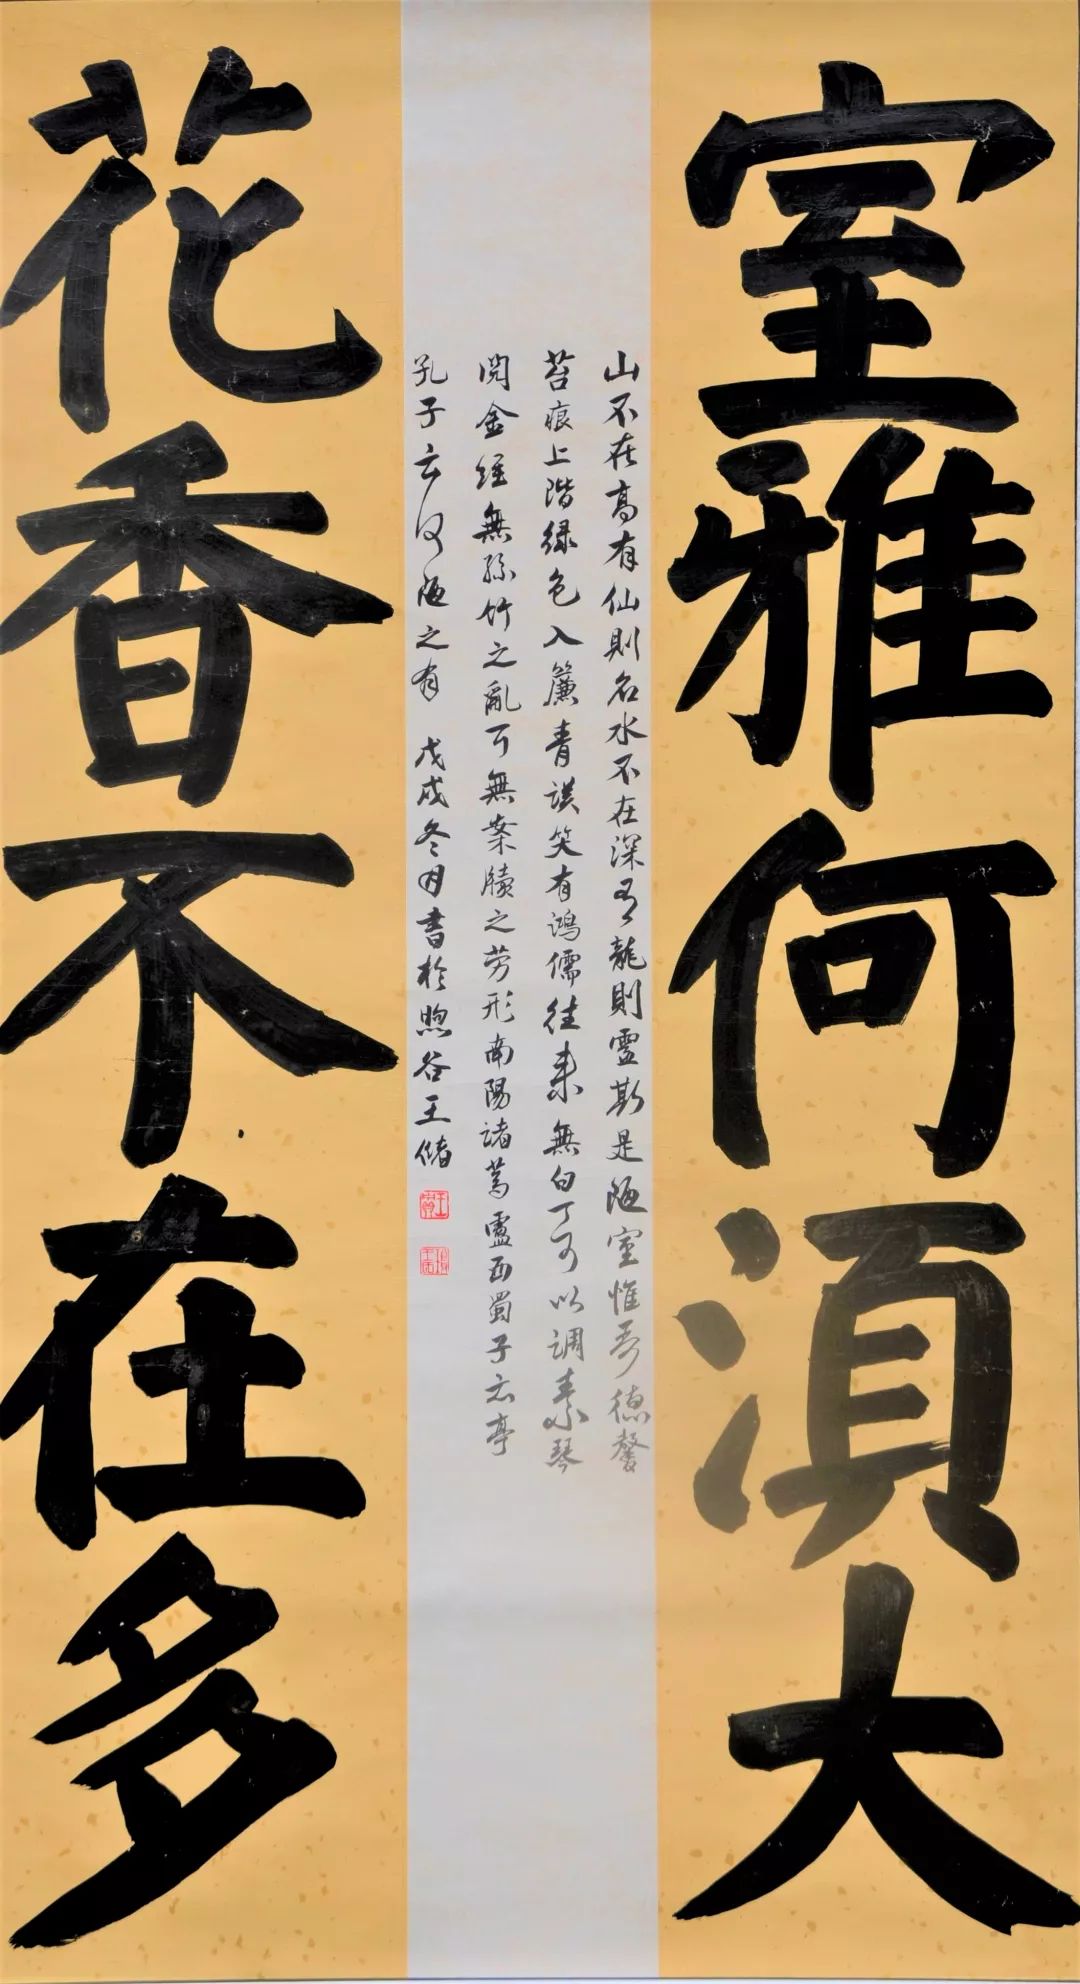 室雅何須大
山不在高有仙則名水不在深有龍則靈斯是陋室惟吾德馨
苔痕上階緑色入簾青談笑有鴻儒往来無白丁可以調素琴
閲金經無絲竹之亂耳無案牘之勞形南陽諸葛盧西蜀子云亭
孔子云何陋之有 戊戌冬月書於照谷王储
花香不在多